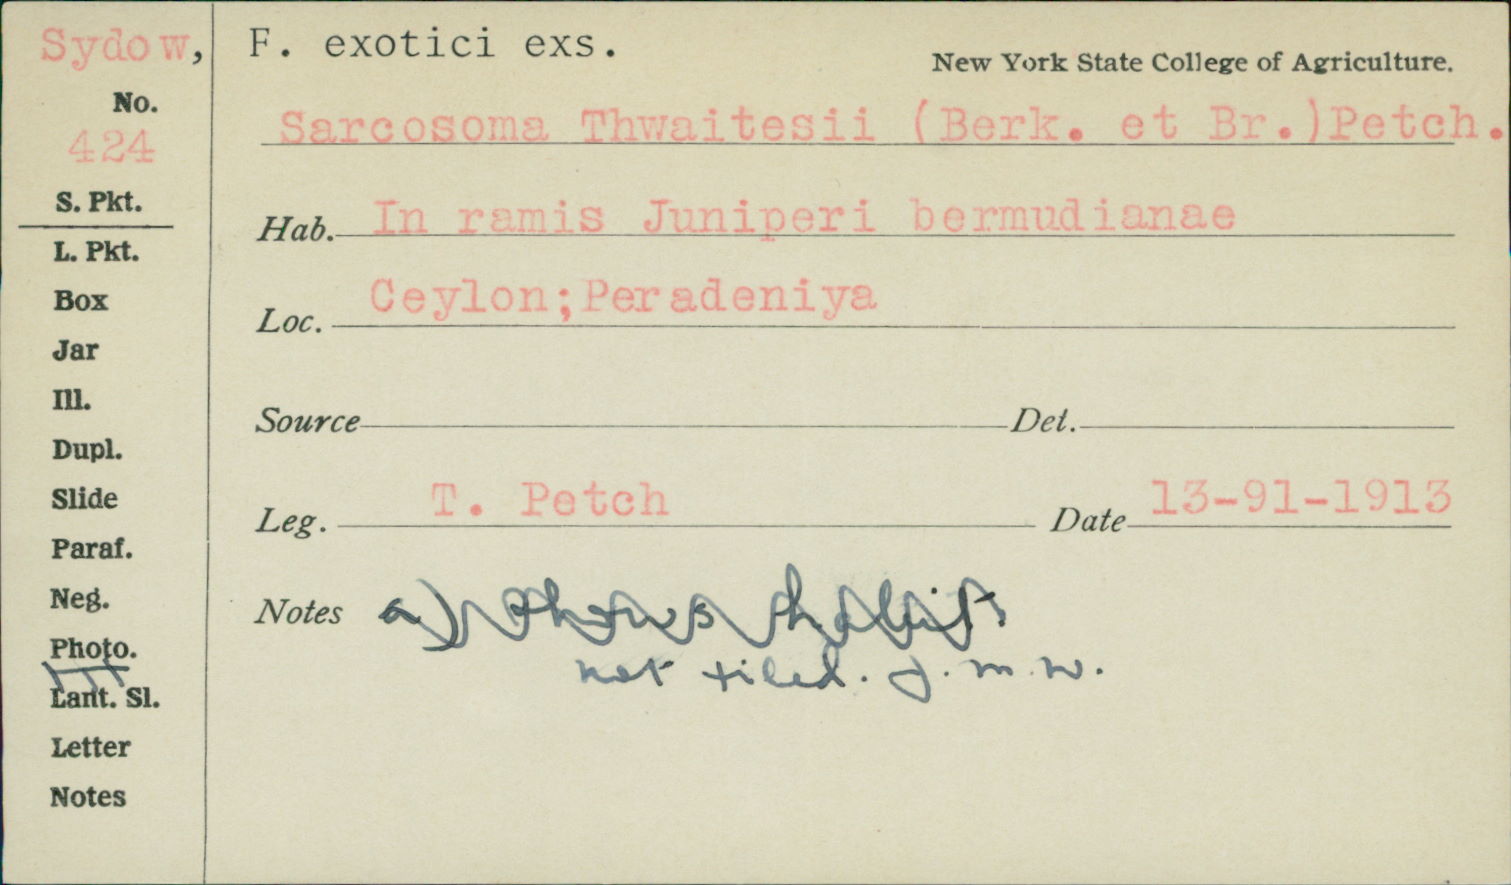 Sydow, F. exotici exs.
New York State College of Agriculture.
No.
424
Sarcosoma Thwaitesii (Berk. et Br.)Petch.
S. Pkt.
Hab. In ramis Juniperi bermudianae
L. Pkt.
Box
Loc. Ceylon;Peradeniya
Jar
Ill.
Source Det.
Dupl.
Slide
Leg. T. Petch Date 13-91-1913
Paraf.
Neg.
Notes a) shows habit.
Photo.
not filed. J. M. W.
Lant. Sl.
Letter
Notes